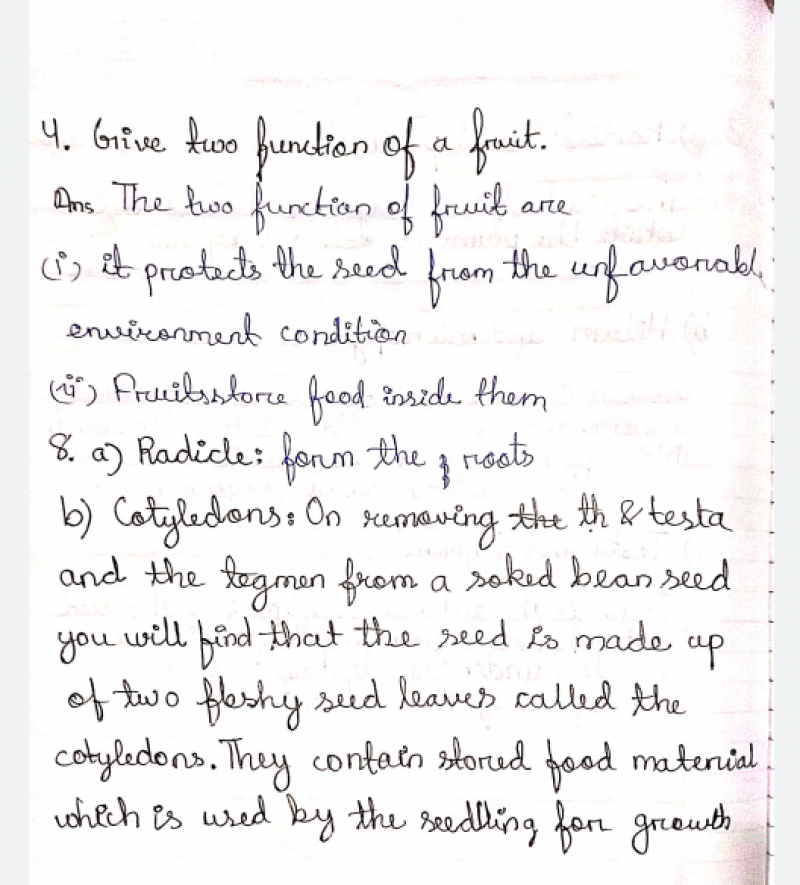 4. Give two function of a fruit.
Ans The two function of fruit are
(i) it protects the seed from the unfavorabl
environment condition
(ii) Fruitsstore food inside them
8. a) Radicle: form the roots
b) Cotyledons: On removing the th & testa
and the tegmen from a soked bean seed
you will find that the seed is made up
of two fleshy seed leaves called the
cotyledons. They contain stored food material
which is used by the seedlling for growth